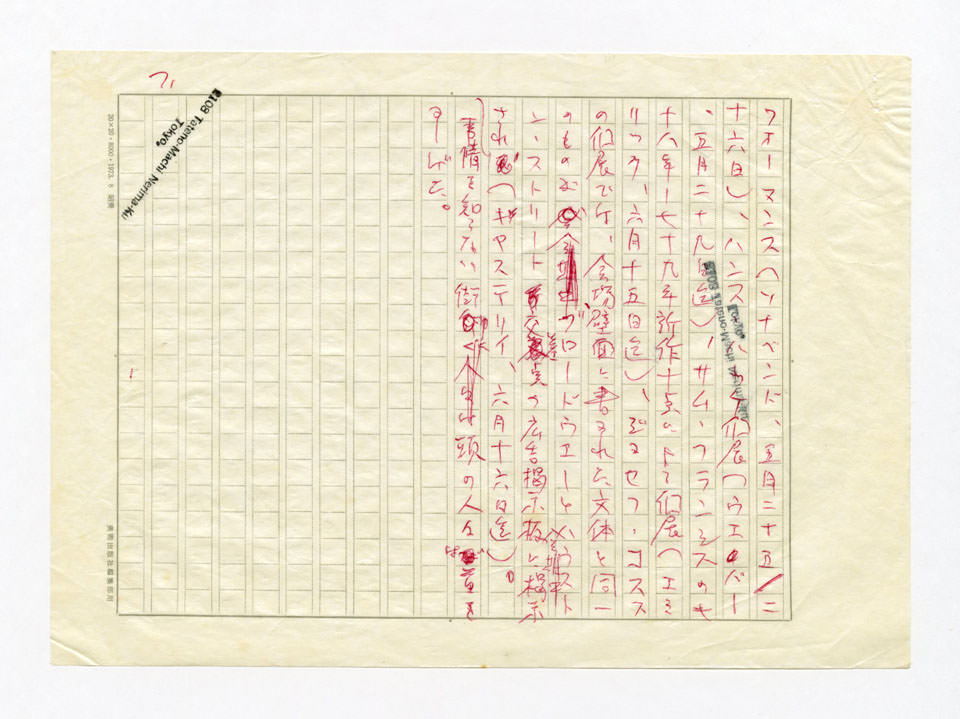 フォーマンス(ソナベンド、五月二十五/二
十六日)、ハンス・ 個展(ウエーバー
、五月二十九日迄)、サム・フランシスの七
十八年ー七十九年新作十点による個展(エミ
リッヒ、六月十五日迄)、ジョセフ・コスス
の個展では、会場壁面に書かれた文体と同一
のものが ブロードウエーとハウスト
ン・ストリート 交差点の広告掲示板に掲示
され (キャステリイ、六月十六日迄)。
事情を知らない街 人 頭の人々 首を
かしげた。
〒108 Tateno-Machi Nerima-Ku
Tokyo,
〒108 Tateno-Machi Nerima-Ku
Tokyo,
20×20・8000・1973. 8